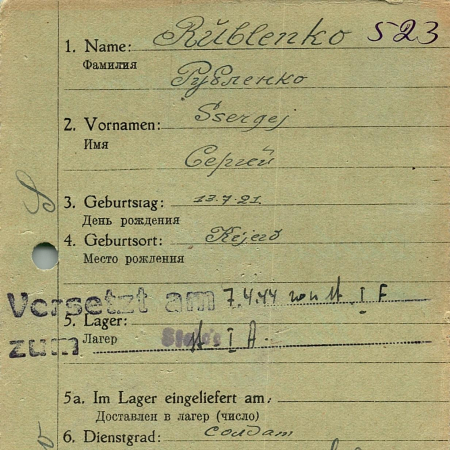 1. Name: Rŭblenko 523
Фамилия Рубленко
2. Vornamen: Ssergej
Имя Сергей
3. Geburtstag: 13.7.21.
День рождения
4. Geburtsort: Kejerd
Место рождения
Versetzt am 7.4.44 von St. I F
5. Lager:
zum Лагер I A.
5a. Im Lager eingeliefert am:
Доставлен в лагер (число)
6. Dienstgrad: солдат